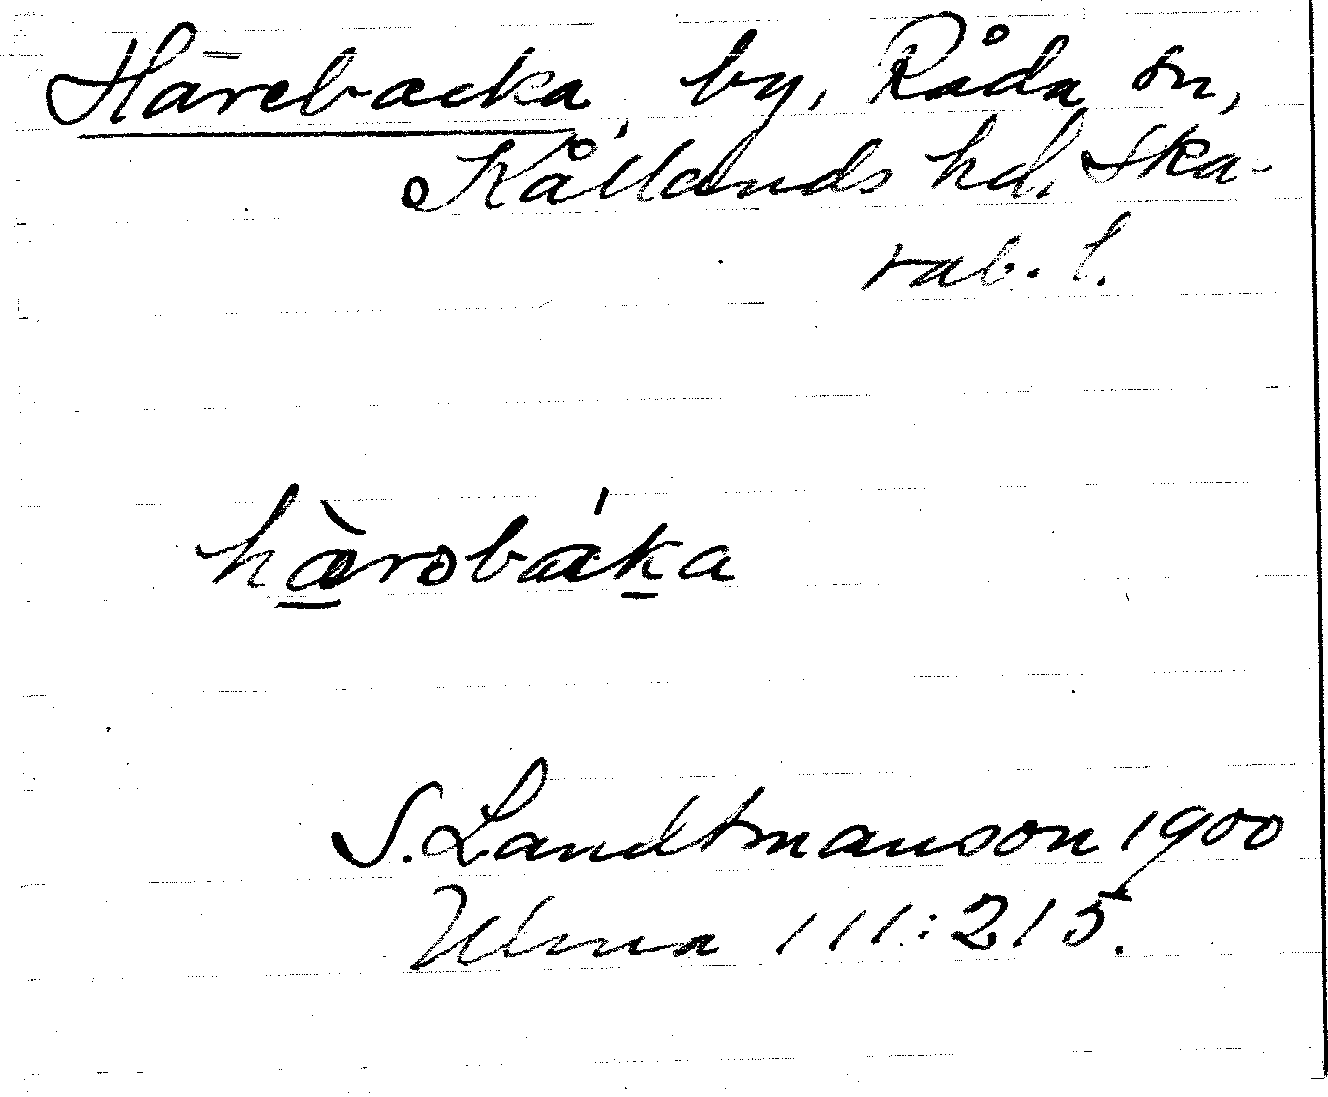 Härebacka, by, Råda sn,
Kållands hd, Ska-
rab. l.
hæ̀robáka
S. Landtmanson 1900
Ulma 111:215.